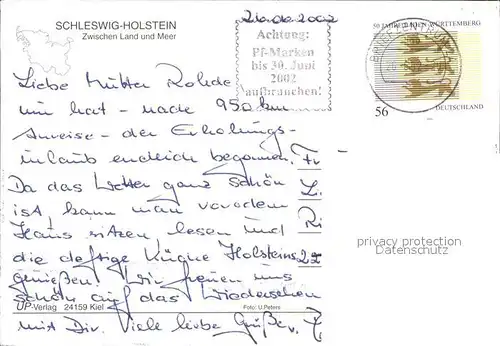 SCHLESWIG-HOLSTEIN
Zwischen Land und Meer
2002
Achtung:
Pf-Marken
bis 30. Juni
2002
aufbrauchen!
50 JAHRE BADEN-WÜRTTEMBERG
BRIEFZENTRUM
56
DEUTSCHLAND
Liebe Mutter Rohde
nun hat - nach 950 km
Anreise - der Erholungs-
urlaub endlich begonnen.
Da das Wetter ganz schön
ist, kann man vor dem
Haus sitzen, lesen und
die deftige Küche Holsteins
genießen! Wir freuen uns
schön auf das Wiedersehen
mit Dir. Viele liebe Grüße v.
Fr
L.
Ri
22
privacy protection
Datenschutz
UP-Verlag 24159 Kiel
Foto: U.Peters